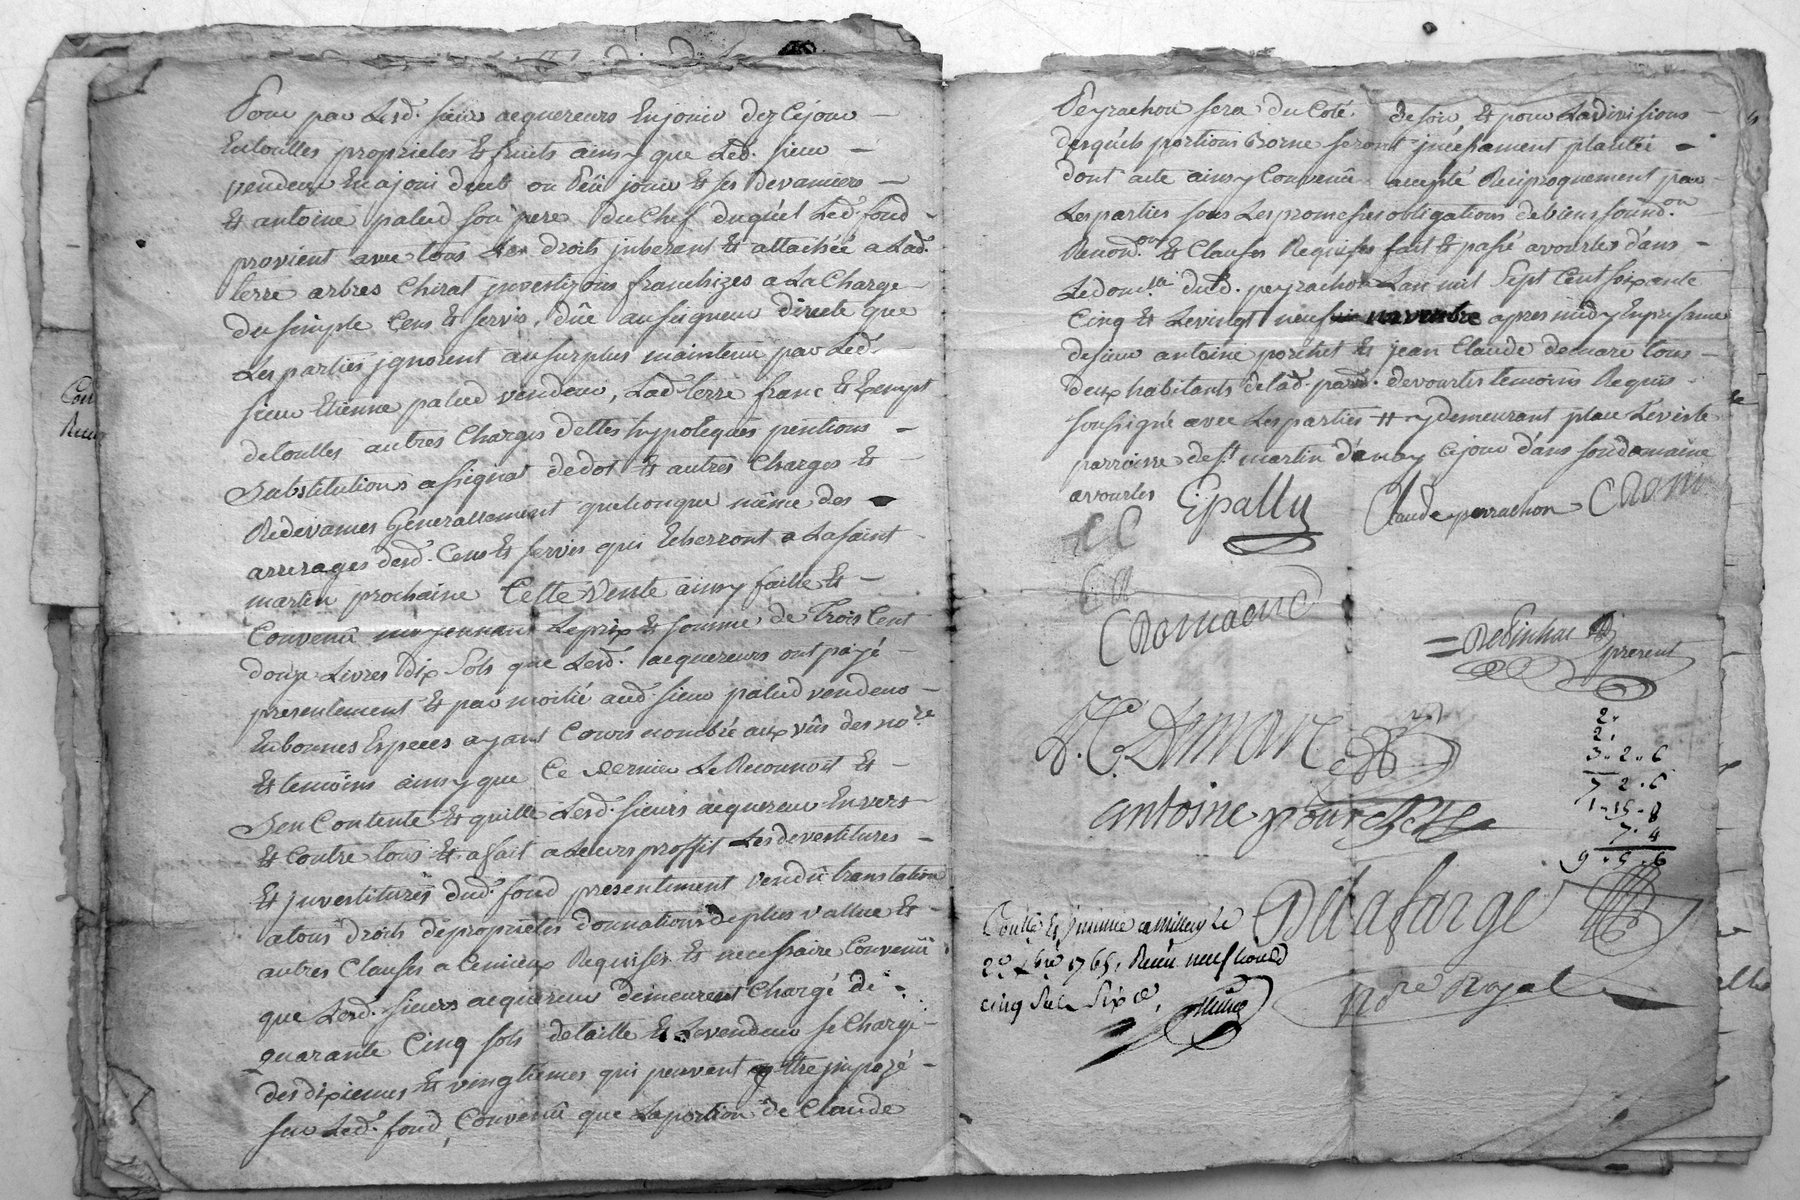 Pour par Lesd. sieurs acquereurs En jouir dez Cejour
En touttes proprietes Et fruits ainsy que Led. sieur
vendeur En a joui deub ou Peü jouir Et ses devanciers
Et antoine palud son pere du Chef duquel Led. fond
provient avec tous Les droits jnherant Et attachéé a Lad.
terre arbres Chirat jnvestizons franchizes a La Charge
du simple Cens Et servis, dûe au seigneur directe que
Les partiés jgnorent au surplus maintenir par Led.
sieur Etienne palud vendeur, Lad. terre franc Et Exempt
de touttes autres Charges dettes hypoteques pentions
Substitutions assignat de dot Et autres Charges Et
Redevances Generallement quelconque même des
arrerages desd. Cens Et servis qui Echerront a La saint
martin prochaine Cette Vente ainsy faitte Et
Convenu moyennant Le prix Et somme de Trois Cent
douze Livres dix Sols que Lesd. acquereurs ont payé
presentement Et par moitié aud. sieur palud vendeur
En bonnes Especes ayant Cours nombré aux vûs des no.re
Et temoins ainsy que Ce dernier Le Reconnoit Et
S'en Contente Et quitte Lesd. sieurs acquereur Envers
Et Contre tous Et a fait a Leurs proffit Les devestitures
Et jnvestitures dud. fond presentement vendû translation
a tous droits de proprietés donnations de plus vallue Et
autres Clauses a Ce mieux Requises Et necessaire Convenû
que Lesd. sieurs acquereur demeurent Chargé de
quarante Cinq sols de taille Et Le vendeur se Charge
des dixiemes Et vingtiemes qui peuvent Estre jmpozé
sur Led. fond, Convenû que La portion de Claude
Peyrachon sera du Coté de soir Et pour La divisions
desquels portions Borne seront jncessament plantéé
dont acte ainsy Convenû accepté Reciproquement par
Les parties sous Les promesses obligations de biens soum.on
Renon.on Et Clauses Requises fait Et passé a vourles dans
Le dom.lle dud. peyrachon L'an mil Sept Cent soixante
Cinq Et Le vingt neuf novembre apres midy En presence
de sieur antoine porchet Et jean Claude demare tous
deux habitants de lad. parr. de vourles temoins Requis
soussigné avec Les parties # y demeurant place Leviste
parroisse de s.t martin d'ainay Cejour dans son domaine
a vourles Epally Claude peyrachon C Rom
C C
C R
C Romaond
present
J. C. Demare
2.
2.
3..2..6
7 2.6
1.15.8
7.4
9.5.6
antoine pourchet
Delafarge
No.re Royal
1765, Receu neuf livres
cinq sols six d.